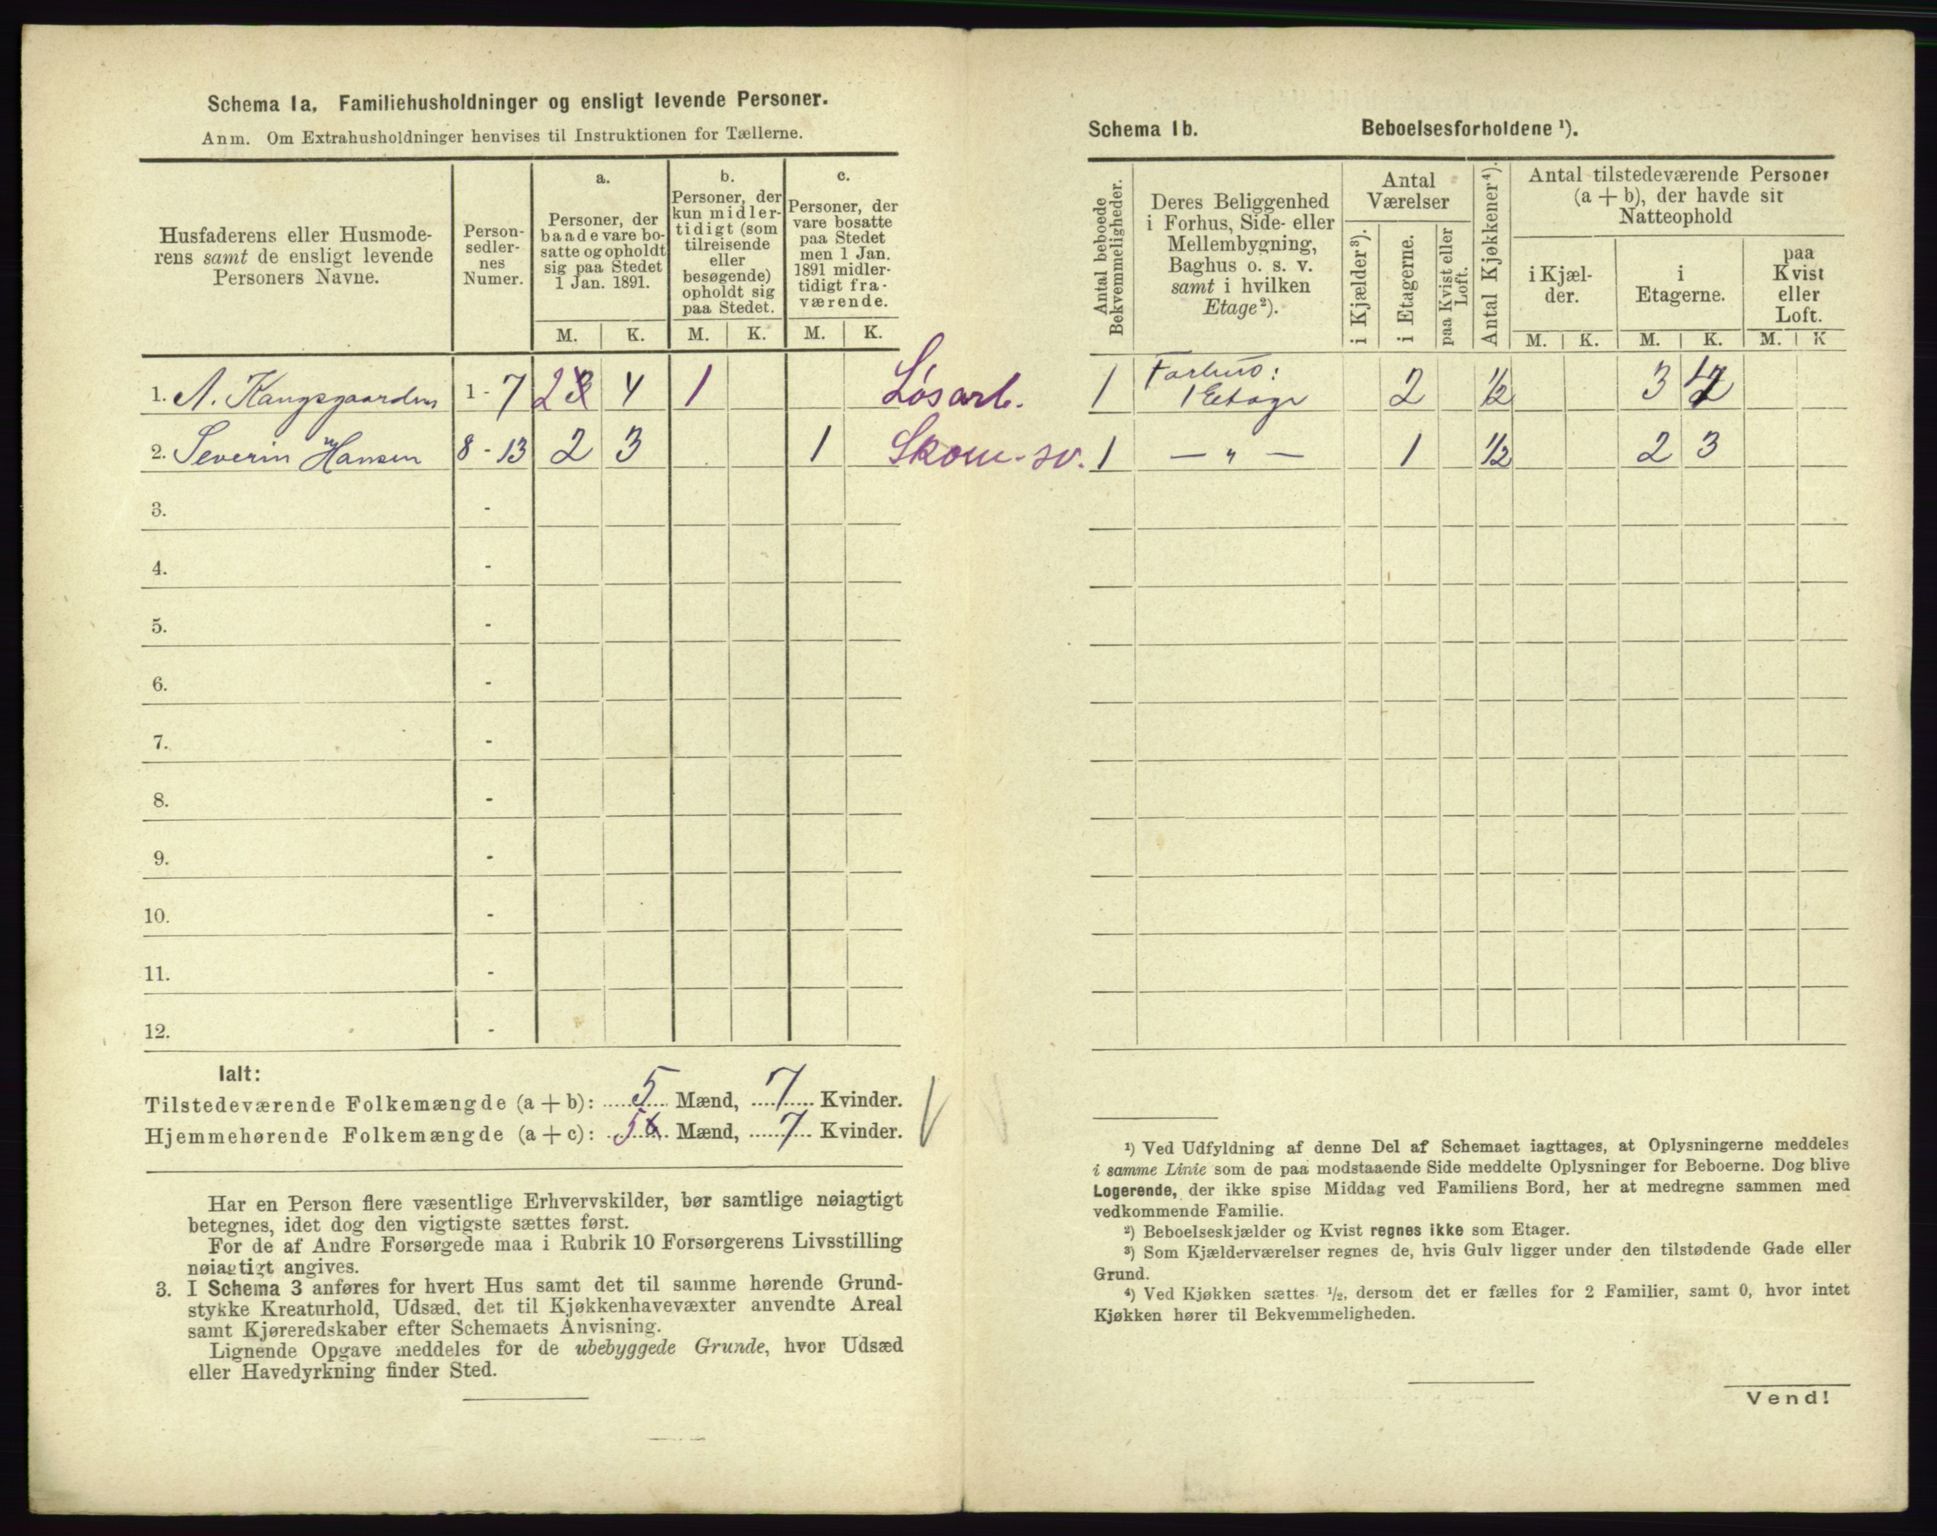 Schema 1a. Familiehusholdninger og ensligt levende Personer.
Anm. Om Extrahusholdninger henvises til Instruktionen for Tællerne.
Husfaderens eller Husmode-
rens samt de ensligt levende
Personers Navne.
Person-
sedler-
nes
Numer.
a.
Personer, der
baade vare bo-
satte og opholdt
sig paa Stedet
1 Jan. 1891.
b.
Personer, der
kun midler-
tidigt (som
tilreisende
eller
besøgende)
opholdt sig
paa Stedet.
c.
Personer, der
vare bosatte
paa Stedet
men 1 Jan.
1891 midler-
tidigt fra-
værende.
M. K. M. K. M. K.
1. A. Kangsgaarden 1 - 7 2 3 4 1 Løsarb.
2. Severin Hansen 8 - 13 2 3 1 Skom. sv.
3. -
4. -
5. -
6. -
7. -
8. -
9. -
10. -
11. -
12. -
Ialt:
Tilstedeværende Folkemængde (a + b): 5 Mænd, 7 Kvinder.
Hjemmehørende Folkemængde (a + c): 5 Mænd, 7 Kvinder.
Har en Person flere væsentlige Erhvervskilder, bør samtlige nøiagtigt
betegnes, idet dog den vigtigste sættes først.
For de af Andre Forsørgede maa i Rubrik 10 Forsørgerens Livsstilling
nøiagtigt angives.
3. I Schema 3 anføres for hvert Hus samt det til samme hørende Grund-
stykke Kreaturhold, Udsæd, det til Kjøkkenhavevæxter anvendte Areal
samt Kjøreredskaber efter Schemaets Anvisning.
Lignende Opgave meddeles for de ubebyggede Grunde, hvor Udsæd
eller Havedyrkning finder Sted.
Schema 1b. Beboelsesforholdene ¹).
Antal beboede
Bekvemmeligheder.
Deres Beliggenhed
i Forhus, Side- eller
Mellembygning,
Baghus o. s. v.
samt i hvilken
Etage²).
Antal
Værelser
i Kjælder³).
i Etagerne.
paa Kvist eller
Loft.
Antal Kjøkkener⁴).
Antal tilstedeværende Personer
(a + b), der havde sit
Natteophold
i Kjæl-
der.
i
Etagerne.
paa
Kvist
eller
Loft.
M. K. M. K. M. K
1 Forhus:
1 Etage 2 ½ 3 4
1 — „ — 1 ½ 2 3
¹) Ved Udfyldning af denne Del af Schemaet iagttages, at Oplysningerne meddeles
i samme Linie som de paa modstaaende Side meddelte Oplysninger for Beboerne. Dog blive
Logerende, der ikke spise Middag ved Familiens Bord, her at medregne sammen med
vedkommende Familie.
²) Beboelseskjælder og Kvist regnes ikke som Etager.
³) Som Kjælderværelser regnes de, hvis Gulv ligger under den tilstødende Gade eller
Grund.
⁴) Ved Kjøkken sættes ½, dersom det er fælles for 2 Familier, samt 0, hvor intet
Kjøkken hører til Bekvemmeligheden.
Vend!